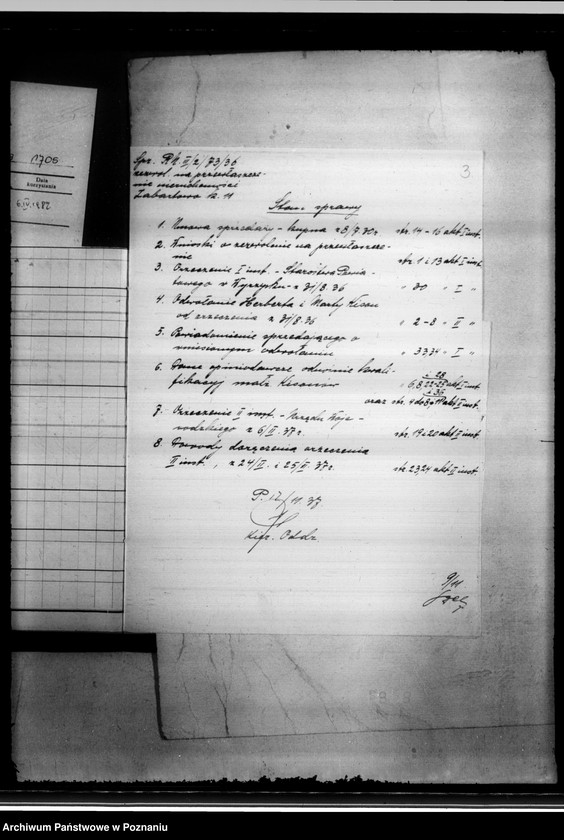 1705
Data
korzystania
6.IV.1982
3
Spr. R/2 II/2/73/36
zezwol. na przewłaszcze-
nie nieruchomości
Żabartowo k. 11
Stan sprawy
1. Umowa sprzedaży - kupna z 8/7.36r. str. 14-15 akt I inst.
2. Wnioski o zezwolenie na przewłaszcze-
nie str. 1 i 13 akt I inst.
3. Orzeczenie I inst. - Starostwa Powia-
towego w Wyrzysku z 31/8.36 " 30 " I "
4. Odwołanie Herberta i Marty
od orzeczenia z 31/8.36 " 2-3 " II "
5. Powiadomienie sprzedającego o
wniesionym odwołaniu " 33,34 " I "
6. Dane opiniodawcze odnośnie kwali-
fikacyj małż. " 6,8,22-25 akt I inst.
oraz str. akt II inst.
7. Orzeczenie II inst. - Urzędu Woje-
wódzkiego z 6/II.37r. str. 19 i 20 akt II inst.
8. Dowody doręczenia orzeczenia
II inst., z 24/II. i 25/II 37r. str. 23,24 akt II inst.
P. 12/11.37
Kier. Oddz.
9/11
Archiwum Państwowe w Poznaniu